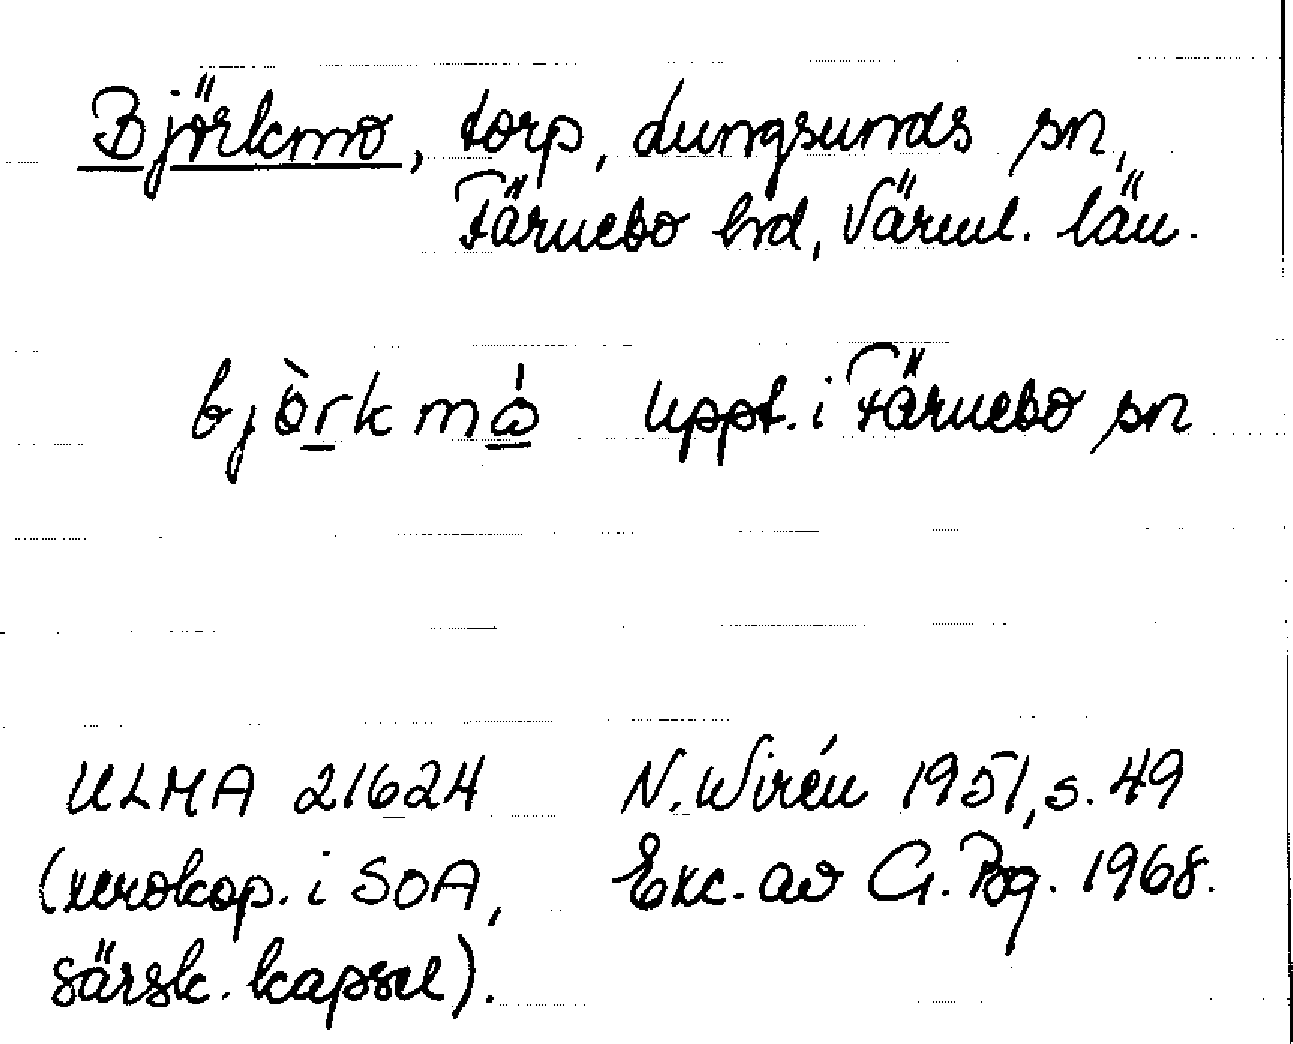 Björkmo, torp, Lungsunds sn,
Färnebo hrd, Värml. län.
bjòrkmå̀ uppt. i Färnebo sn
ULMA 21624 N. Wirén 1951, s. 49
(xerokop. i SOA, Exc. av G. Bg. 1968.
särsk. kapsel).